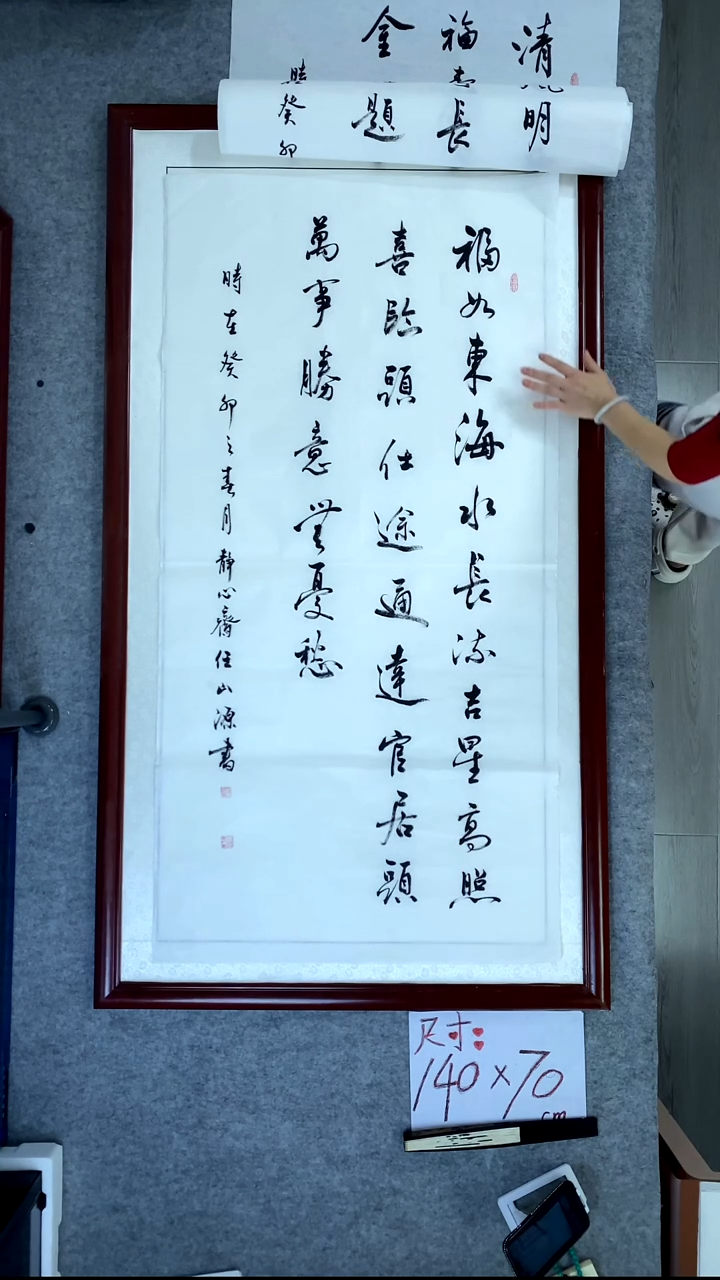 清明
福長
金題
時癸卯
福如東海水長流吉星高照
喜臨頭仕途通達官居頭
萬事勝意無憂愁
時在癸卯之春月靜心齋任山源書
尺寸:
140×70
cm